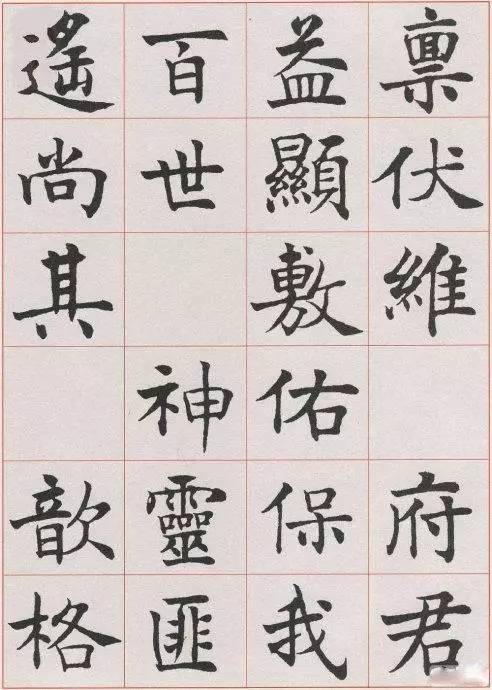 禀伏維　府君
益顯敷佑保我
百世　神靈匪
遙尚其　歆格